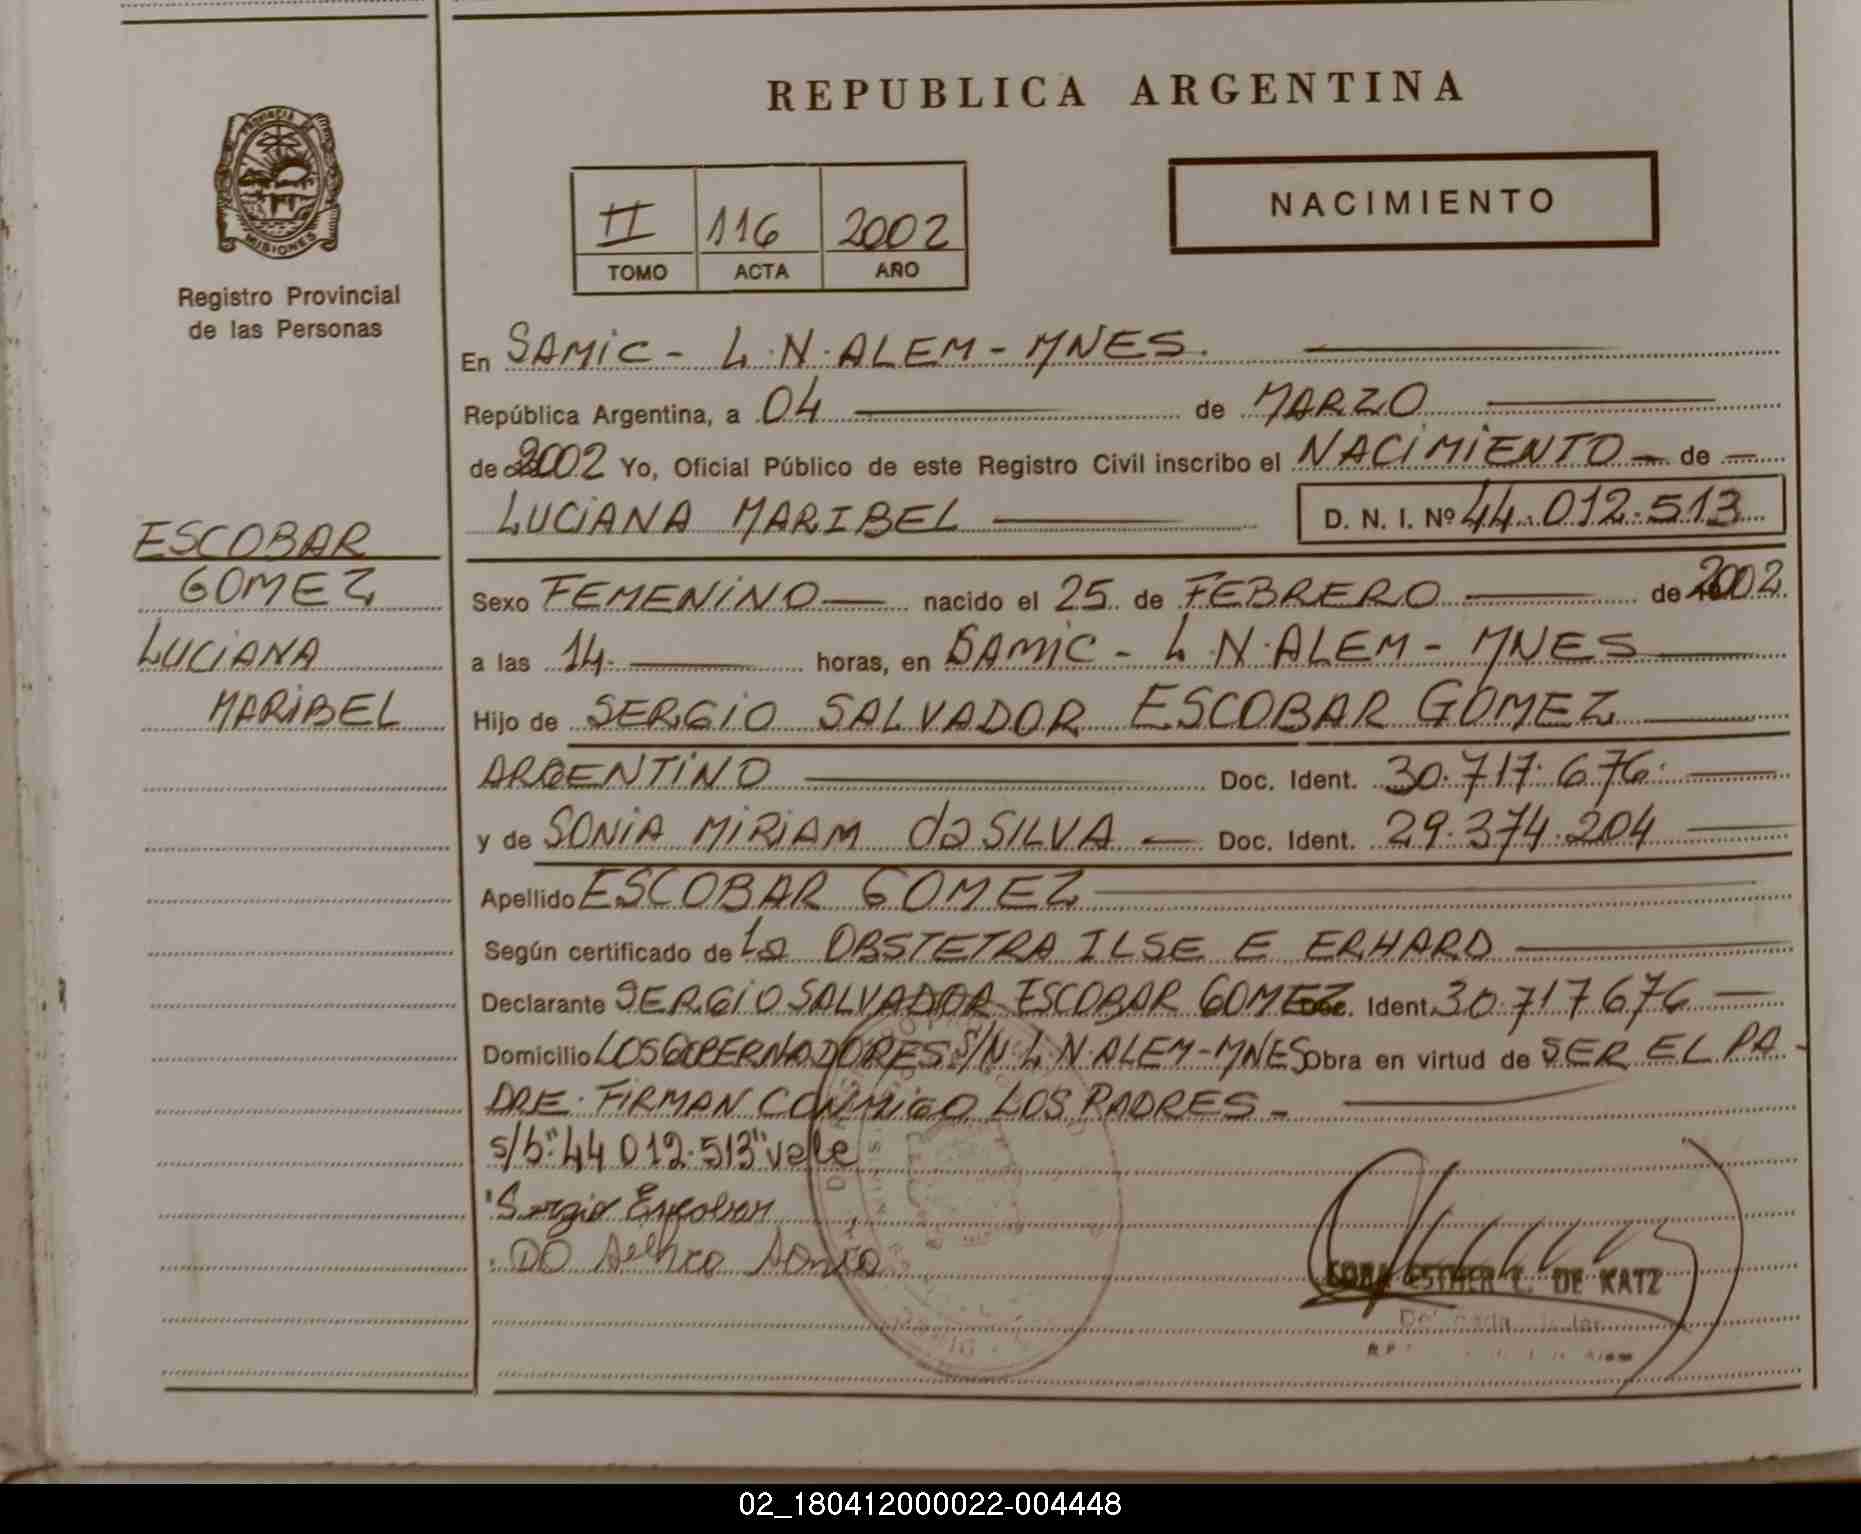 REPUBLICA ARGENTINA
PROVINCIA DE
MISIONES
Registro Provincial
de las Personas
II 116 2002
TOMO ACTA AÑO
NACIMIENTO
En SAMIC - L.N. ALEM - MNES.
República Argentina, a 04 de MARZO
de 2002 Yo, Oficial Público de este Registro Civil inscribo el NACIMIENTO de
LUCIANA MARIBEL D. N. I. Nº 44.012.513
ESCOBAR
GOMEZ
LUCIANA
MARIBEL
Sexo FEMENINO nacido el 25 de FEBRERO de 2002
a las 14 horas, en SAMIC - L.N. ALEM - MNES
Hijo de SERGIO SALVADOR ESCOBAR GOMEZ
ARGENTINO Doc. Ident. 30.717.676
y de SONIA MIRIAM da SILVA Doc. Ident. 29.374.204
Apellido ESCOBAR GOMEZ
Según certificado de La OBSTETRA ILSE E ERHARD
Declarante SERGIO SALVADOR ESCOBAR GOMEZ Doc. Ident. 30.717676
Domicilio LOS GOBERNADORES S/N L.N. ALEM - MNES Obra en virtud de SER EL PA-
DRE. FIRMAN CONMIGO LOS PADRES -
s/b "44 012.513" vale
Sergio Escobar
ESTHER C. DE KATZ
02_180412000022-004448